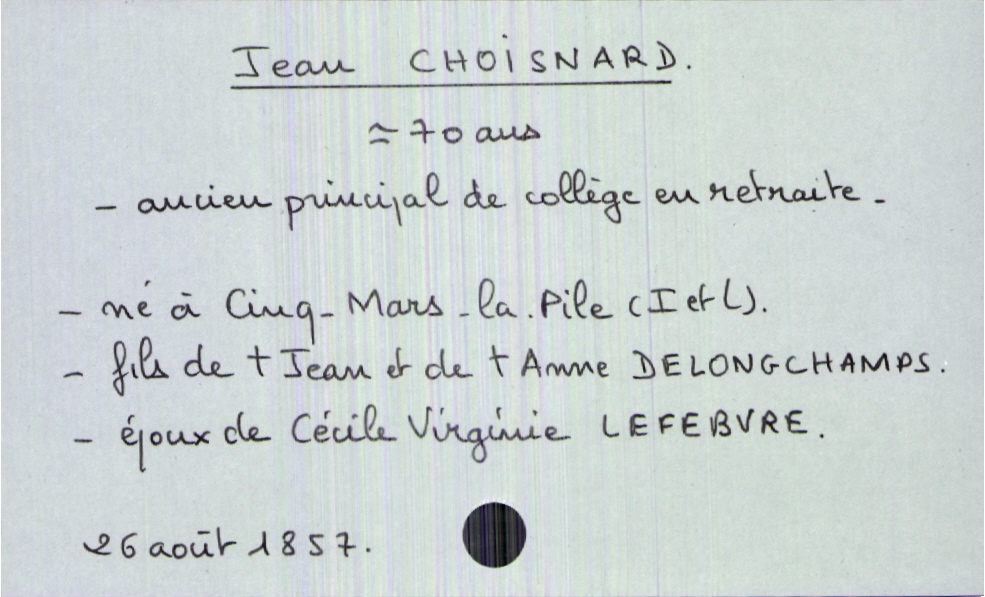 Jean CHOISNARD.
≃ 70 ans
- ancien principal de collège en retraite -
- né à Cinq-Mars-la.Pile (I et L).
- fils de † Jean et de † Anne DELONGCHAMPS.
- époux de Cécile Virginie LEFEBVRE.
26 août 1857.